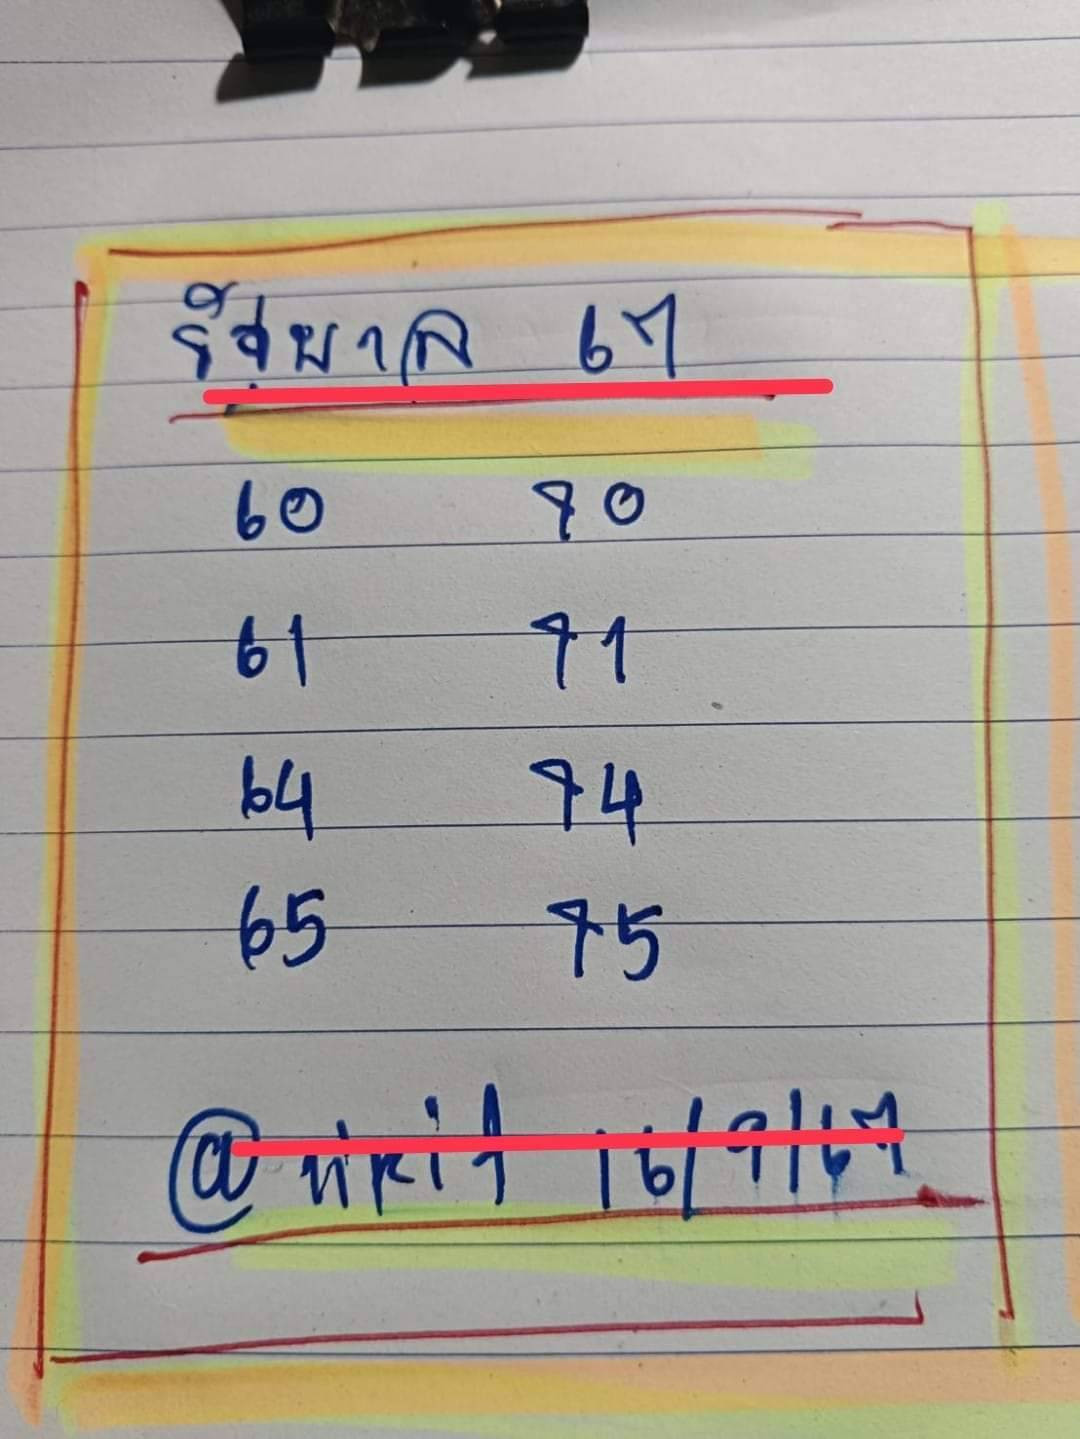 รัฐบาล 67
60 70
61 71
64 74
65 75
@ 16/9/67